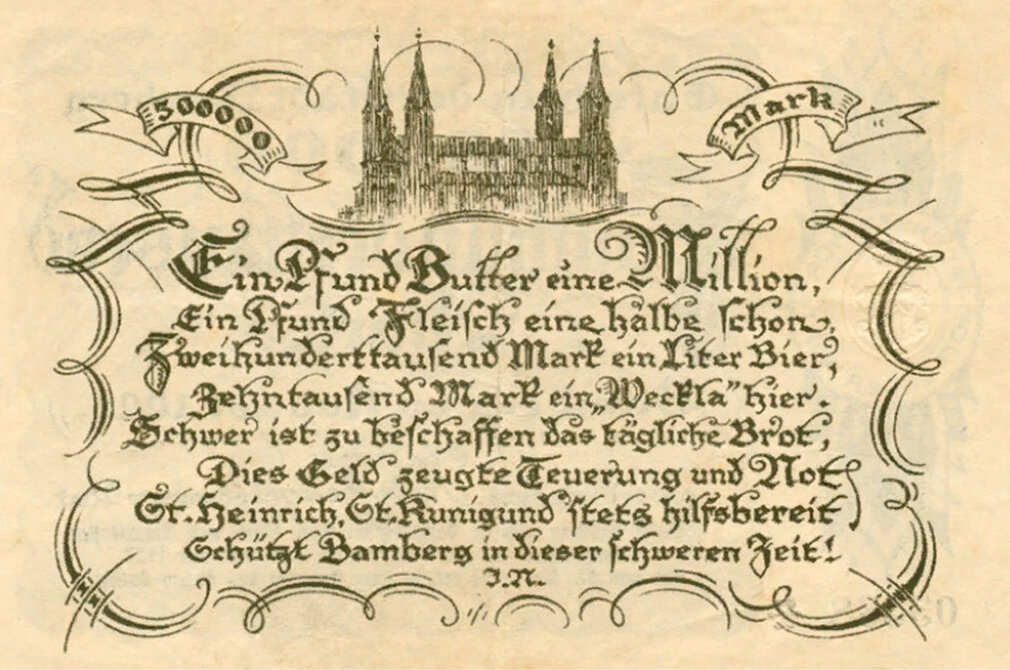 500000 Mark
Ein Pfund Butter eine Million,
Ein Pfund Fleisch eine halbe schon,
Zweihunderttausend Mark ein Liter Bier,
Zehntausend Mark ein „Weckla" hier.
Schwer ist zu beschaffen das tägliche Brot,
Dies Geld zeugte Teuerung und Not
St. Heinrich, St. Kunigund stets hilfsbereit
Schützt Bamberg in dieser schweren Zeit!
J.N.